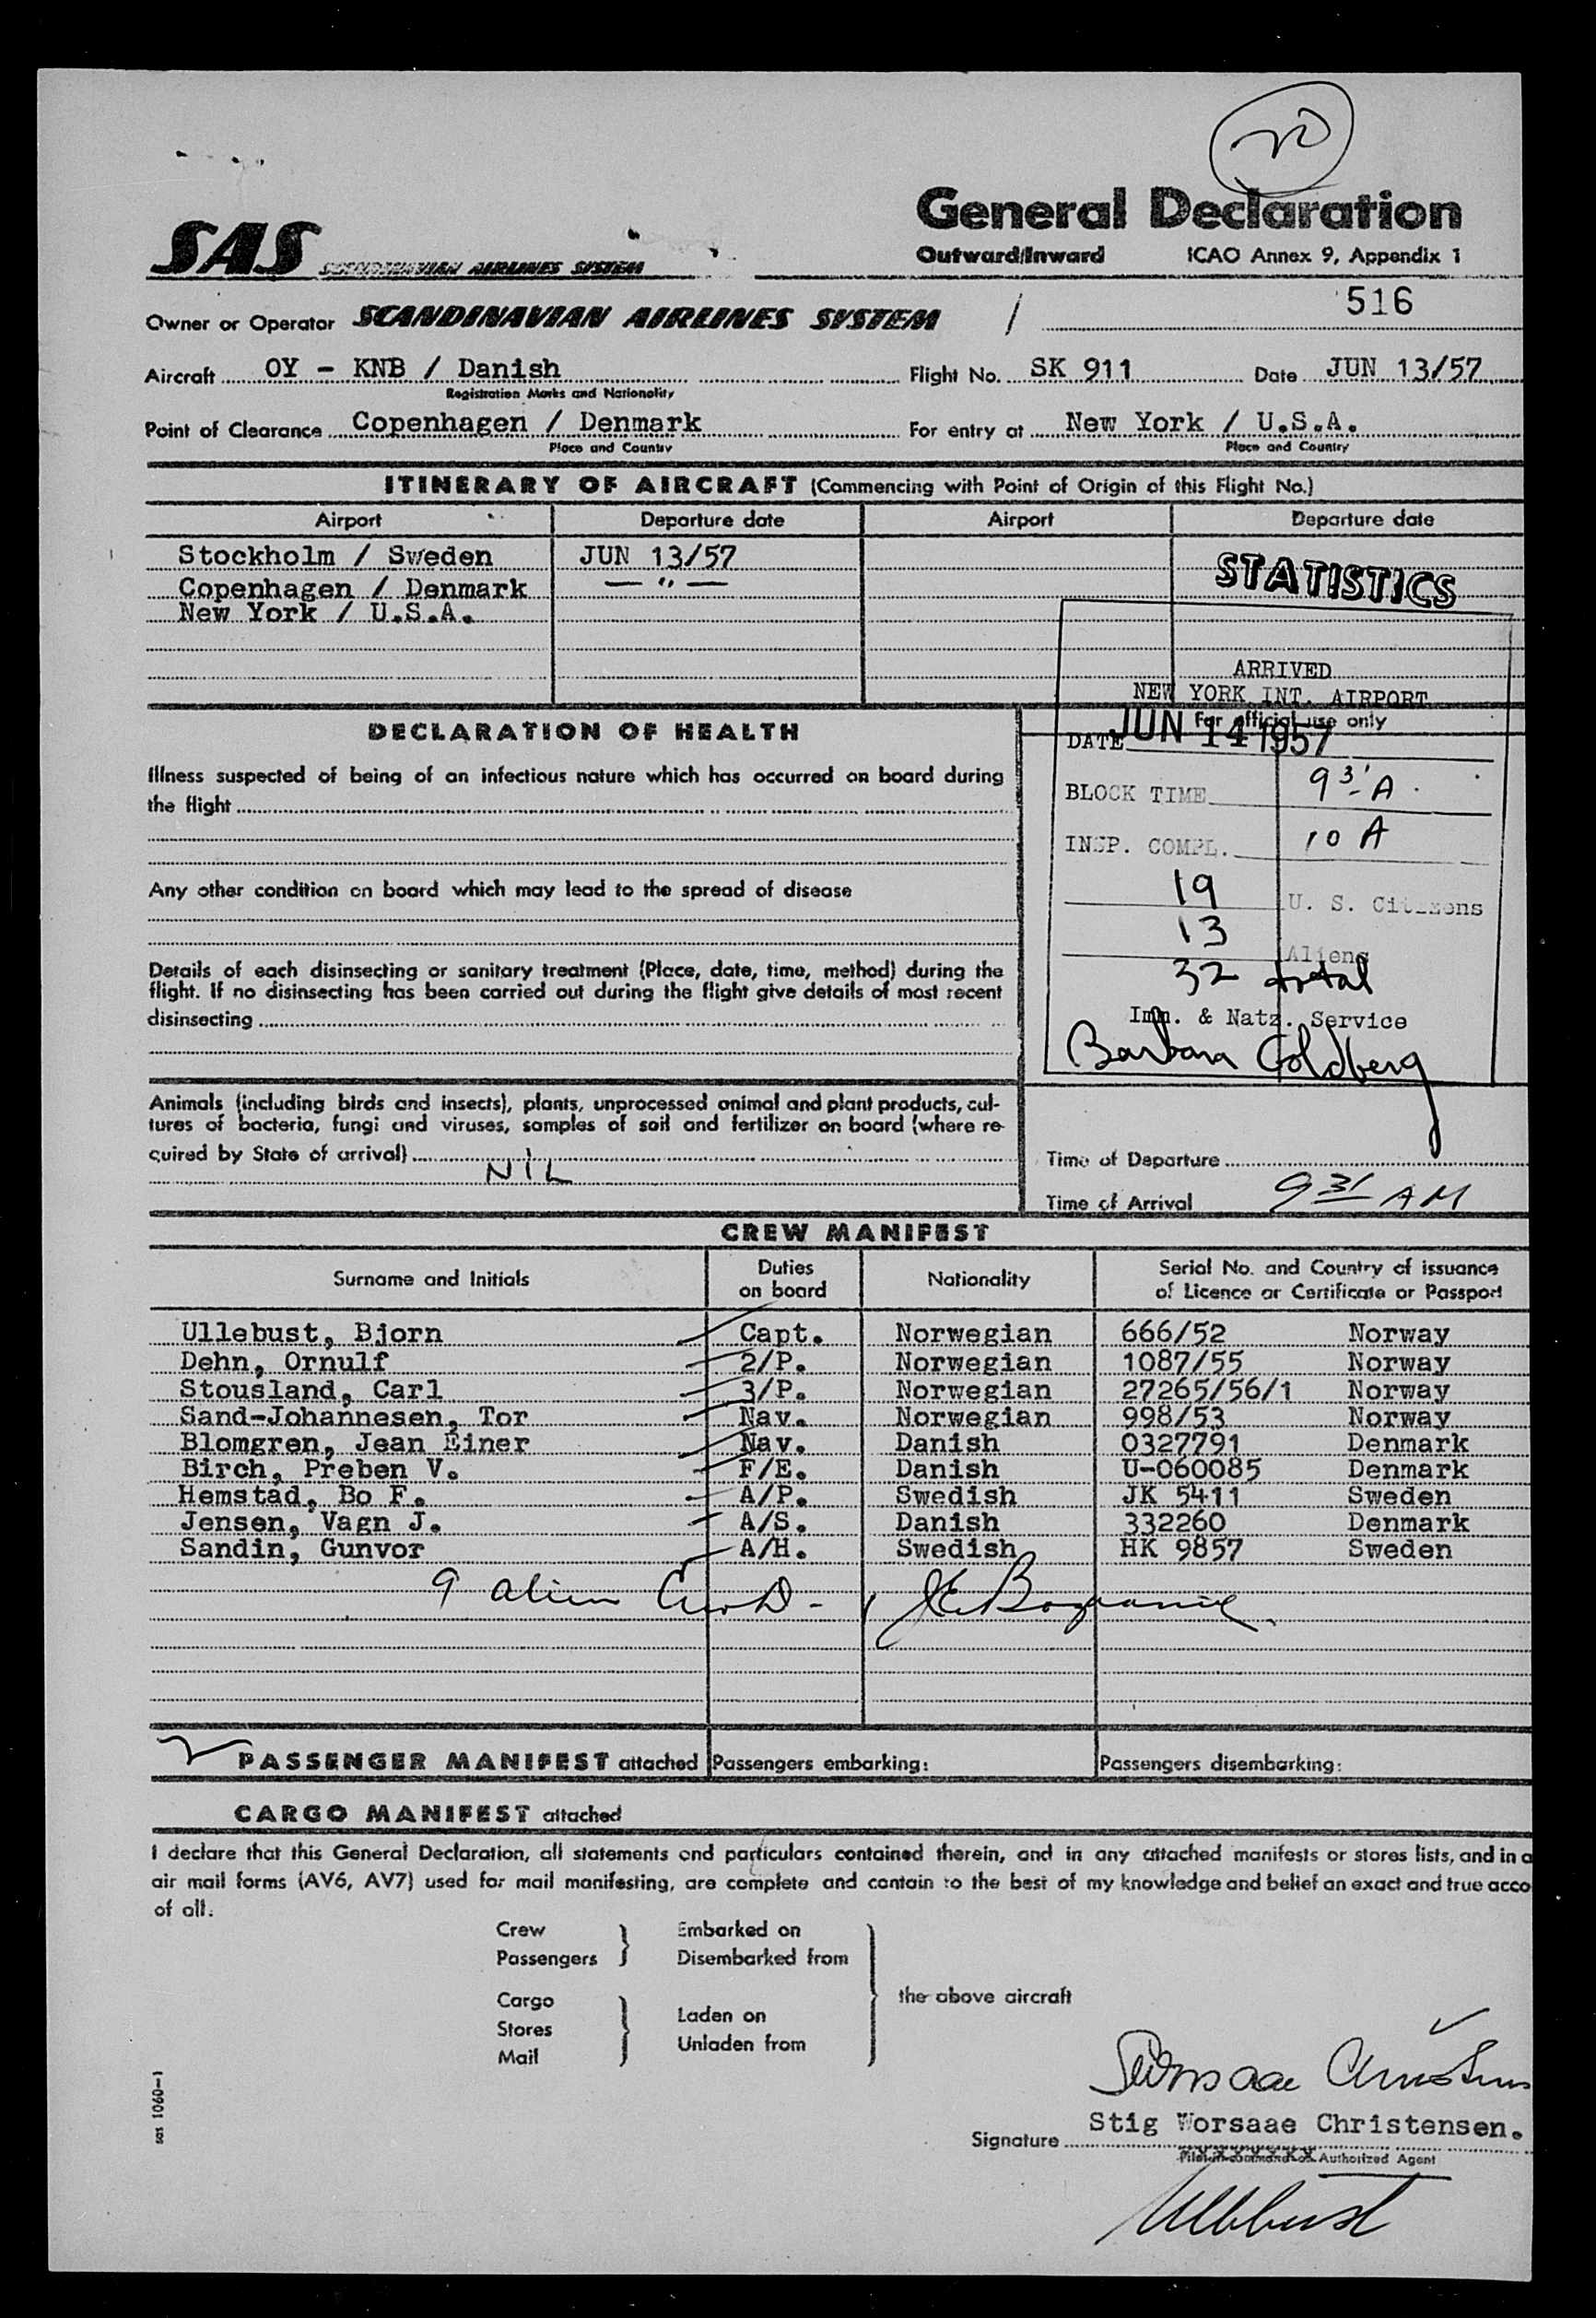 20
General Declaration
SAS SCANDINAVIAN AIRLINES SYSTEM
Outward/Inward ICAO Annex 9, Appendix 1
Owner or Operator SCANDINAVIAN AIRLINES SYSTEM / 516
Aircraft OY - KNB / Danish Flight No. SK 911 Date JUN 13/57
Registration Marks and Nationality
Point of Clearance Copenhagen / Denmark For entry at New York / U.S.A.
Place and Country Place and Country
ITINERARY OF AIRCRAFT (Commencing with Point of Origin of this Flight No.)
Airport Departure date Airport Departure date
Stockholm / Sweden JUN 13/57
Copenhagen / Denmark — " —
New York / U.S.A.
STATISTICS
ARRIVED
NEW YORK INT. AIRPORT
For official use only
DATE JUN 14 1957
BLOCK TIME 931 A
INSP. COMPL. 10 A
19 U. S. Citizens
13 Aliens
32 total
Imm. & Natz. Service
Barbara Goldberg
DECLARATION OF HEALTH
Illness suspected of being of an infectious nature which has occurred on board during
the flight
Any other condition on board which may lead to the spread of disease
Details of each disinsecting or sanitary treatment (Place, date, time, method) during the
flight. If no disinsecting has been carried out during the flight give details of most recent
disinsecting
Animals (including birds and insects), plants, unprocessed animal and plant products, cul-
tures of bacteria, fungi and viruses, samples of soil and fertilizer on board (where re-
quired by State of arrival)
NIL
Time of Departure
Time of Arrival 931 AM
CREW MANIFEST
Surname and Initials Duties on board Nationality Serial No. and Country of issuance of Licence or Certificate or Passport
Ullebust, Bjorn Capt. Norwegian 666/52 Norway
Dehn, Ornulf 2/P. Norwegian 1087/55 Norway
Stousland, Carl 3/P. Norwegian 27265/56/1 Norway
Sand-Johannesen, Tor Nav. Norwegian 998/53 Norway
Blomgren, Jean Einer Nav. Danish 0327791 Denmark
Birch, Preben V. F/E. Danish U-060085 Denmark
Hemstad, Bo F. A/P. Swedish JK 5411 Sweden
Jensen, Vagn J. A/S. Danish 332260 Denmark
Sandin, Gunvor A/H. Swedish HK 9857 Sweden
9 alien
PASSENGER MANIFEST attached Passengers embarking: Passengers disembarking:
CARGO MANIFEST attached
I declare that this General Declaration, all statements and particulars contained therein, and in any attached manifests or stores lists, and in a
air mail forms (AV6, AV7) used for mail manifesting, are complete and contain to the best of my knowledge and belief an exact and true acco
of all:
Crew Embarked on
Passengers Disembarked from
the above aircraft
Cargo
Stores Laden on
Mail Unladen from
Stig Worsaae Christensen.
Signature
Pilot-in-command or Authorized Agent
Ullebust
sas 1060-1